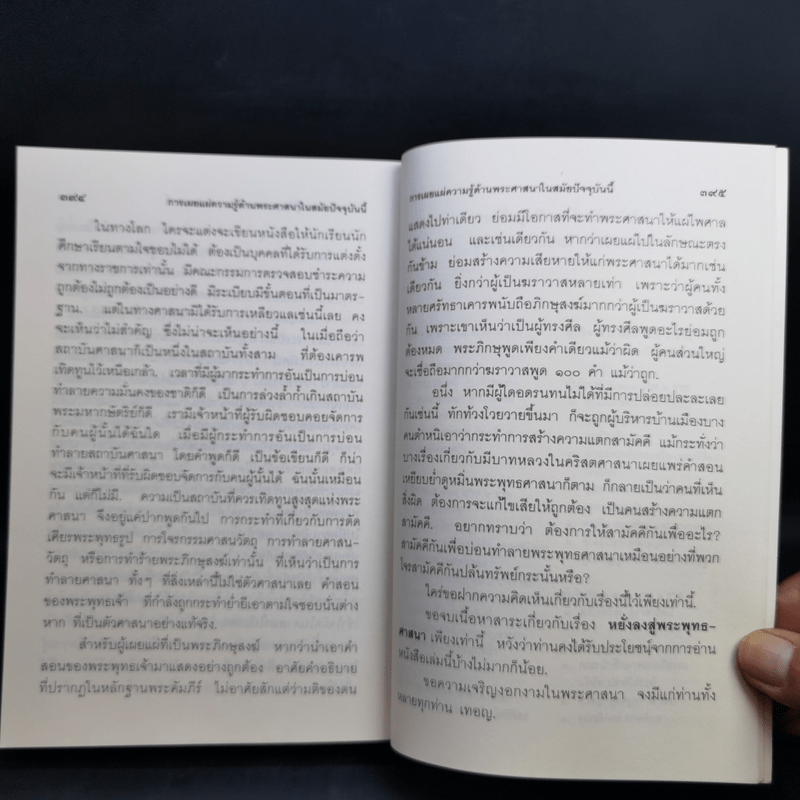 ๓๙๔ การเผยแผ่ความรู้ด้านพระศาสนาในสมัยปัจจุบันนี้
ในทางโลก ใครจะแต่งจะเขียนหนังสือให้นักเรียนนัก
ศึกษาเรียนตามใจชอบไม่ได้ ต้องเป็นบุคคลที่ได้รับการแต่งตั้ง
จากทางราชการเท่านั้น มีคณะกรรมการตรวจสอบชำระความ
ถูกต้องไม่ถูกต้องเป็นอย่างดี มีระเบียบมีขั้นตอนที่เป็นมาตร-
ฐาน. แต่ในทางศาสนามิได้รับการเหลียวแลเช่นนี้เลย คง
จะเห็นว่าไม่สำคัญ ซึ่งไม่น่าจะเห็นอย่างนี้ ในเมื่อถือว่า
สถาบันศาสนาก็เป็นหนึ่งในสถาบันทั้งสาม ที่ต้องเคารพ
เทิดทูนไว้เหนือเกล้า. เวลาที่มีผู้มากระทำการอันเป็นการบ่อน
ทำลายความมั่นคงของชาติก็ดี เป็นการล่วงล้ำก้ำเกินสถาบัน
พระมหากษัตริย์ก็ดี เรามีเจ้าหน้าที่ผู้รับผิดชอบคอยจัดการ
กับคนผู้นั้นได้ฉันใด เมื่อมีผู้กระทำการอันเป็นการบ่อน
ทำลายสถาบันศาสนา โดยคำพูดก็ดี เป็นข้อเขียนก็ดี ก็น่า
จะมีเจ้าหน้าที่ที่รับผิดชอบจัดการกับคนผู้นั้นได้ ฉันนั้นเหมือน
กัน แต่ก็ไม่มี. ความเป็นสถาบันที่ควรเทิดทูนสูงสุดแห่งพระ
ศาสนา จึงอยู่แค่ปากพูดกันไป การกระทำที่เกี่ยวกับการตัด
เศียรพระพุทธรูป การโจรกรรมศาสนวัตถุ การทำลายศาสน-
วัตถุ หรือการทำร้ายพระภิกษุสงฆ์เท่านั้น ที่เห็นว่าเป็นการ
ทำลายศาสนา ทั้งๆ ที่สิ่งเหล่านี้ไม่ใช่ตัวศาสนาเลย คำสอน
ของพระพุทธเจ้า ที่กำลังถูกกระทำย่ำยีเอาตามใจชอบนั่นต่าง
หาก ที่เป็นตัวศาสนาอย่างแท้จริง.
สำหรับผู้เผยแผ่ที่เป็นพระภิกษุสงฆ์ หากว่านำเอาคำ
สอนของพระพุทธเจ้ามาแสดงอย่างถูกต้อง อาศัยคำอธิบาย
ที่ปรากฏในหลักฐานพระคัมภีร์ ไม่อาศัยสักแต่ว่ามติของตน
การเผยแผ่ความรู้ด้านพระศาสนาในสมัยปัจจุบันนี้ ๓๙๕
แสดงไปท่าเดียว ย่อมมีโอกาสที่จะทำพระศาสนาให้แผ่ไพศาล
ได้แน่นอน และเช่นเดียวกัน หากว่าเผยแผ่ไปในลักษณะตรง
กันข้าม ย่อมสร้างความเสียหายให้แก่พระศาสนาได้มากเช่น
เดียวกัน ยิ่งกว่าผู้เป็นฆราวาสหลายเท่า เพราะว่าผู้คนทั้ง
หลายศรัทธาเคารพนับถือภิกษุสงฆ์มากกว่าผู้เป็นฆราวาสด้วย
กัน เพราะเขาเห็นว่าเป็นผู้ทรงศีล ผู้ทรงศีลพูดอะไรย่อมถูก
ต้องหมด พระภิกษุพูดเพียงคำเดียวแม้ว่าผิด ผู้คนส่วนใหญ่
จะเชื่อถือมากกว่าฆราวาสพูด ๑๐๐ คำ แม้ว่าถูก.
อนึ่ง หากมีผู้ใดอดรนทนไม่ได้ที่มีการปล่อยปละละเลย
กันเช่นนี้ ทักท้วงโวยวายขึ้นมา ก็จะถูกผู้บริหารบ้านเมืองบาง
คนตำหนิเอาว่ากระทำการสร้างความแตกสามัคคี แม้กระทั่งว่า
บางเรื่องเกี่ยวกับมีบาทหลวงในคริสตศาสนาเผยแพร่คำสอน
เหยียบย่ำดูหมิ่นพระพุทธศาสนาก็ตาม ก็กลายเป็นว่าคนที่เห็น
สิ่งผิด ต้องการจะแก้ไขเสียให้ถูกต้อง เป็นคนสร้างความแตก
สามัคคี. อยากทราบว่า ต้องการให้สามัคคีกันเพื่ออะไร?
สามัคคีกันเพื่อบ่อนทำลายพระพุทธศาสนาเหมือนอย่างที่พวก
โจรสามัคคีกันปล้นทรัพย์กระนั้นหรือ?
ใคร่ขอฝากความคิดเห็นเกี่ยวกับเรื่องนี้ไว้เพียงเท่านี้.
ขอจบเนื้อหาสาระเกี่ยวกับเรื่อง หยั่งลงสู่พระพุทธ-
ศาสนา เพียงเท่านี้ หวังว่าท่านคงได้รับประโยชน์จากการอ่าน
หนังสือเล่มนี้บ้างไม่มากก็น้อย.
ขอความเจริญงอกงามในพระศาสนา จงมีแก่ท่านทั้ง
หลายทุกท่าน เทอญ.